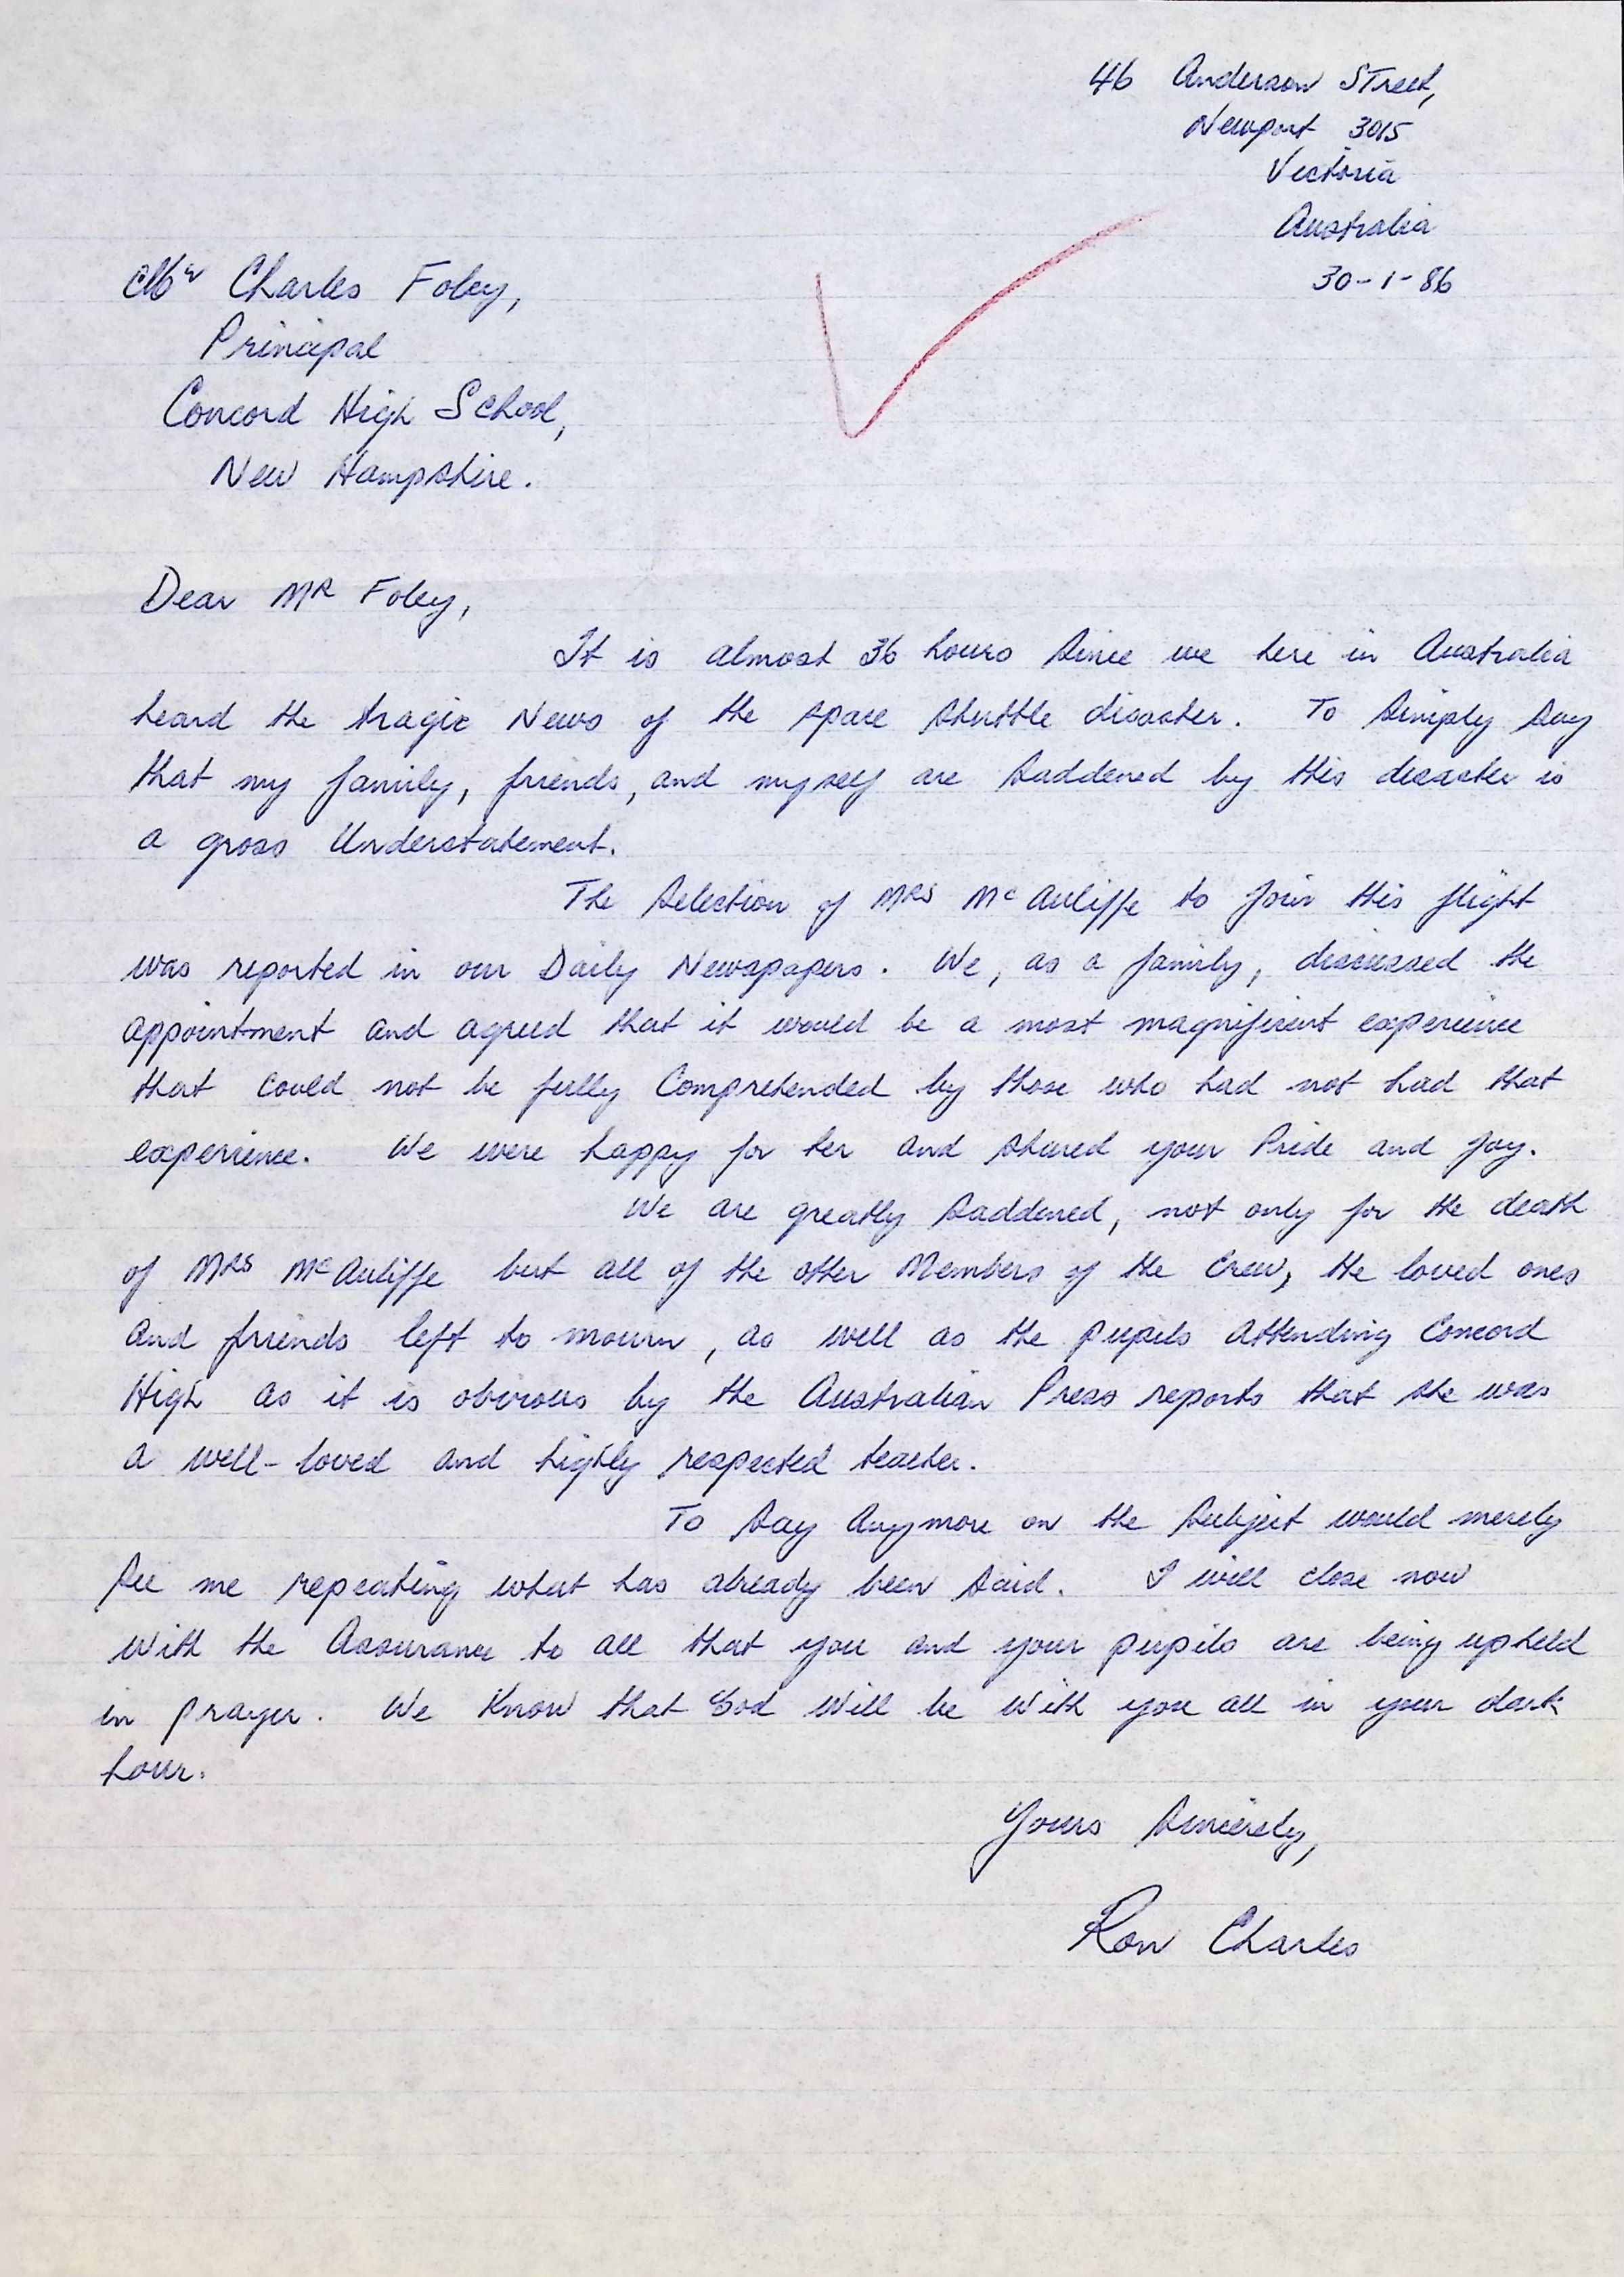 46 Anderson Street,
Newport 3015
Victoria
Australia
30-1-86
Mr Charles Foley,
Principal
Concord High School,
New Hampshire.
Dear MR Foley,
It is almost 36 hours since we here in Australia
heard the tragic News of the space shuttle disaster. To simply say
that my family, friends, and myself are saddened by this disaster is
a gross Understatement.
The selection of MRS McAuliffe to join this flight
was reported in our Daily Newspapers. We, as a family, discussed the
appointment and agreed that it would be a most magnificent experience
that could not be fully Comprehended by those who had not had that
experience. We were happy for her and shared your Pride and joy.
We are greatly saddened, not only for the death
of MRS McAuliffe but all of the other Members of the Crew, the loved ones
and friends left to mourn, as well as the pupils attending Concord
High as it is obvious by the Australian Press reports that she was
a well-loved and highly respected teacher.
To say anymore on the subject would merely
see me repeating what has already been said. I will close now
with the Assurance to all that you and your pupils are being upheld
in prayer. We Know that God will be with you all in your dark
hour.
Yours Sincerely,
Ron Charles